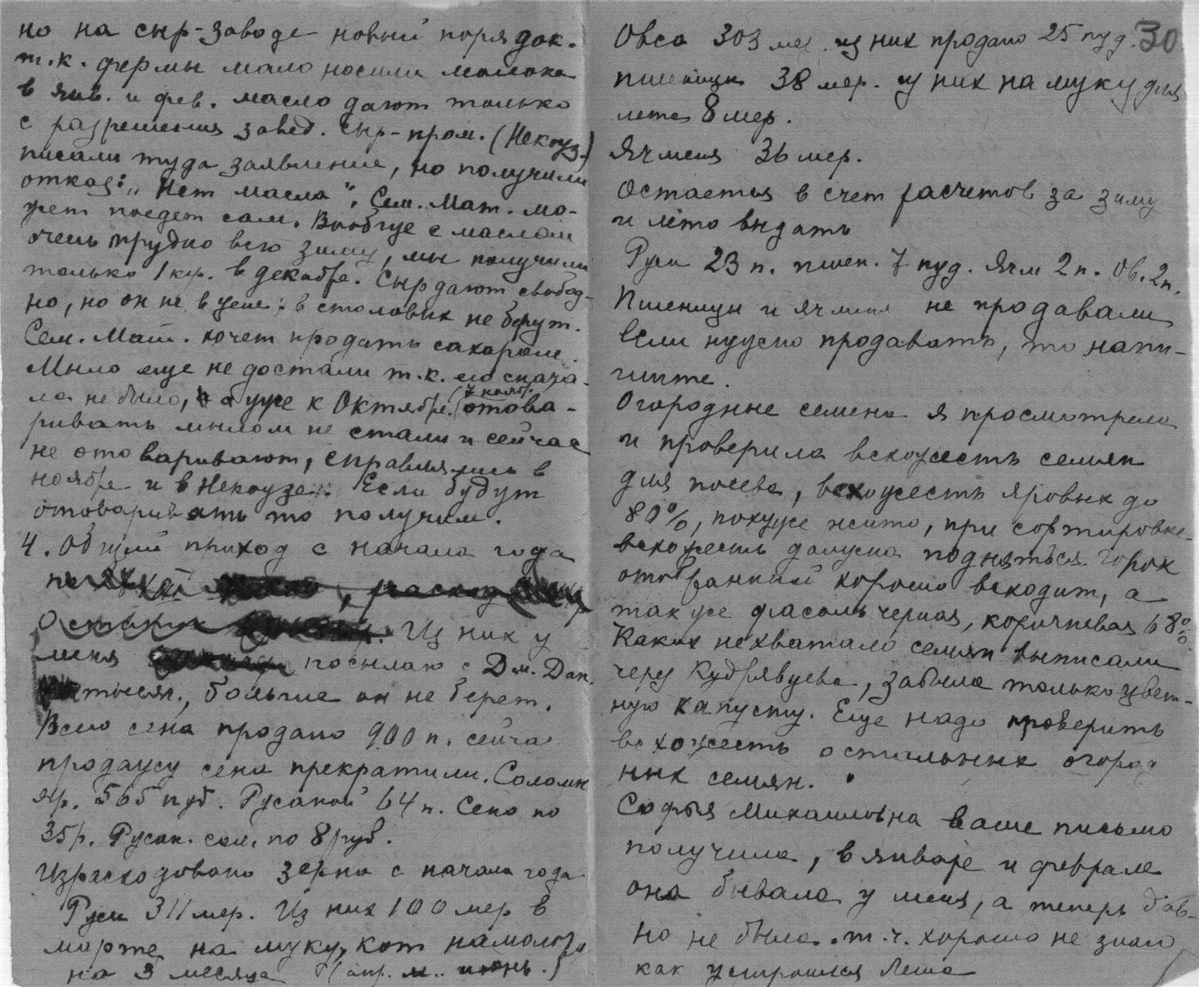 но на сыр-заводе новый порядок.
т.к. фермы мало носили молока
в янв. и фев. масло дают только
с разрешения завед. сыр-пром. (Некоуз.)
писали туда заявление, но получили
отказ: "Нет масла". Сем. Мат. мо-
жет поедет сам. Вообще с маслом
очень трудно всю зиму, мы получили
только 1 кгр. в декабре. Сыр дают свобод-
но, но он не в цене: в столовых не берут.
Сем. Мат. хочет продать сахаром.
Мыло еще не достали т.к. его снача-
ла не было, а уже к Октябре (7 нояб.) отова-
ривать мылом не стали и сейчас
не отоваривают, справлялись в
ноябре и в Некоузе. Если будут
отоваривать то получим.
4. Общий приход с начала года
расход
Остаток Из них у
меня посылаю с Дм. Дан.
тысяч, больше он не берет.
Всего сена продано 900 п. сейча
продажу сена прекратили. Соломы
яр. 565 пуд. Ржаной 64 п. Сено по
35р. Ржан. сол. по 8 руб.
Израсходовано зерна с начала года
Ржи 311 мер. Из них 100 мер в
марте на муку, кот намолоть
на 3 месяца (апр. м. июнь.)
30
Овса 303 мер. из них продано 25 пуд.
пшеницы 38 мер. из них на муку для
лета 8 мер.
Ячменя 36 мер.
Остается в счет расчетов за зиму
и лето выдать
Ржи 23 п. пшен. 7 пуд. Ячм 2 п. Ов. 2 п.
Пшеницы и ячменя не продавали
Если нужно продавать, то напи-
шите.
Огородные семена я просмотрела
и проверила всхожесть семян
для посева, всхожесть яровых до
80%, похуже жито, при сортировке
всхожесть должна подняться. Горох
отобранный хорошо всходит, а
так же фасоль черная, коричневая 68%.
Каких нехватало семян выписали
через Кудрявцева, забыла только цвет-
ную капусту. Еще надо проверить
всхожесть остальных огород
ных семян.
Софья Михаиловна ваше письмо
получила, в январе и феврале
она бывала у меня, а теперь дав-
но не была. т.ч. хорошо не знаю
как устроился Леша